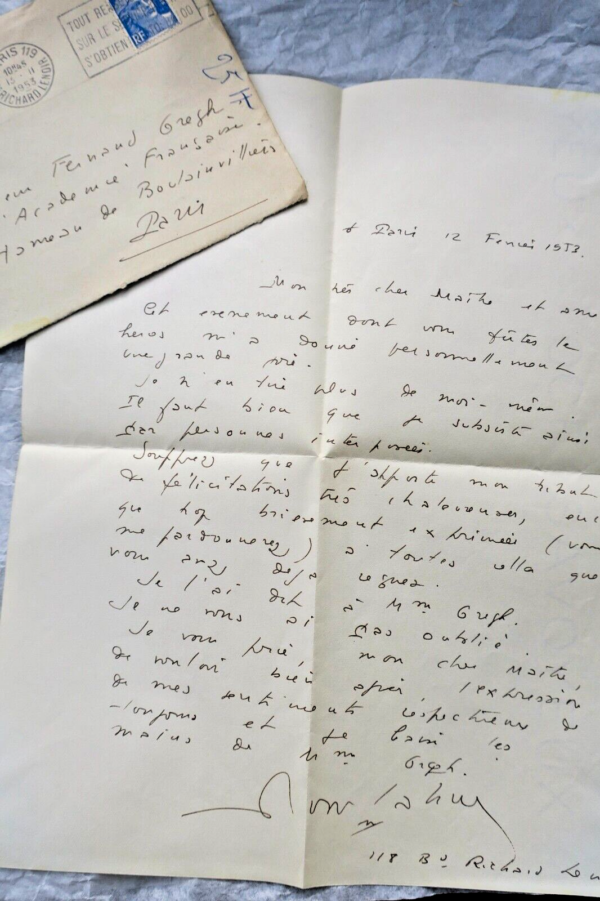 TOUT RE
SUR LE S
S'OBTIEN
RF
00
PARIS 119
1953
RICHARD LENOIR
25 F
Fernand Gregh
Académie Française
Hameau de Boulainvilliers
Paris
Paris 12 Février 1953.
Mon très cher Maître et ami
Cet evenement dont vous fûtes le
heros m'a donné personnellement
une grande joie.
Je n'en tire plus de moi-même.
Il faut bien que je subsiste ainsi
par personnes interposées.
Souffrez que j'apporte mon tribut
de félicitations très chaleureuses, enc
que trop brievement exprimées (vous
me pardonnerez) à toutes celles que
vous avez deja reçues.
Je l'ai dit à Mme Gregh.
Je ne vous ai pas oublié.
Je vous prie, mon cher Maître,
de vouloir bien agréer l'expression
de mes sentiments respectueux de
toujours et je baise les
mains de Mme Gregh.
118 Bd Richard Len